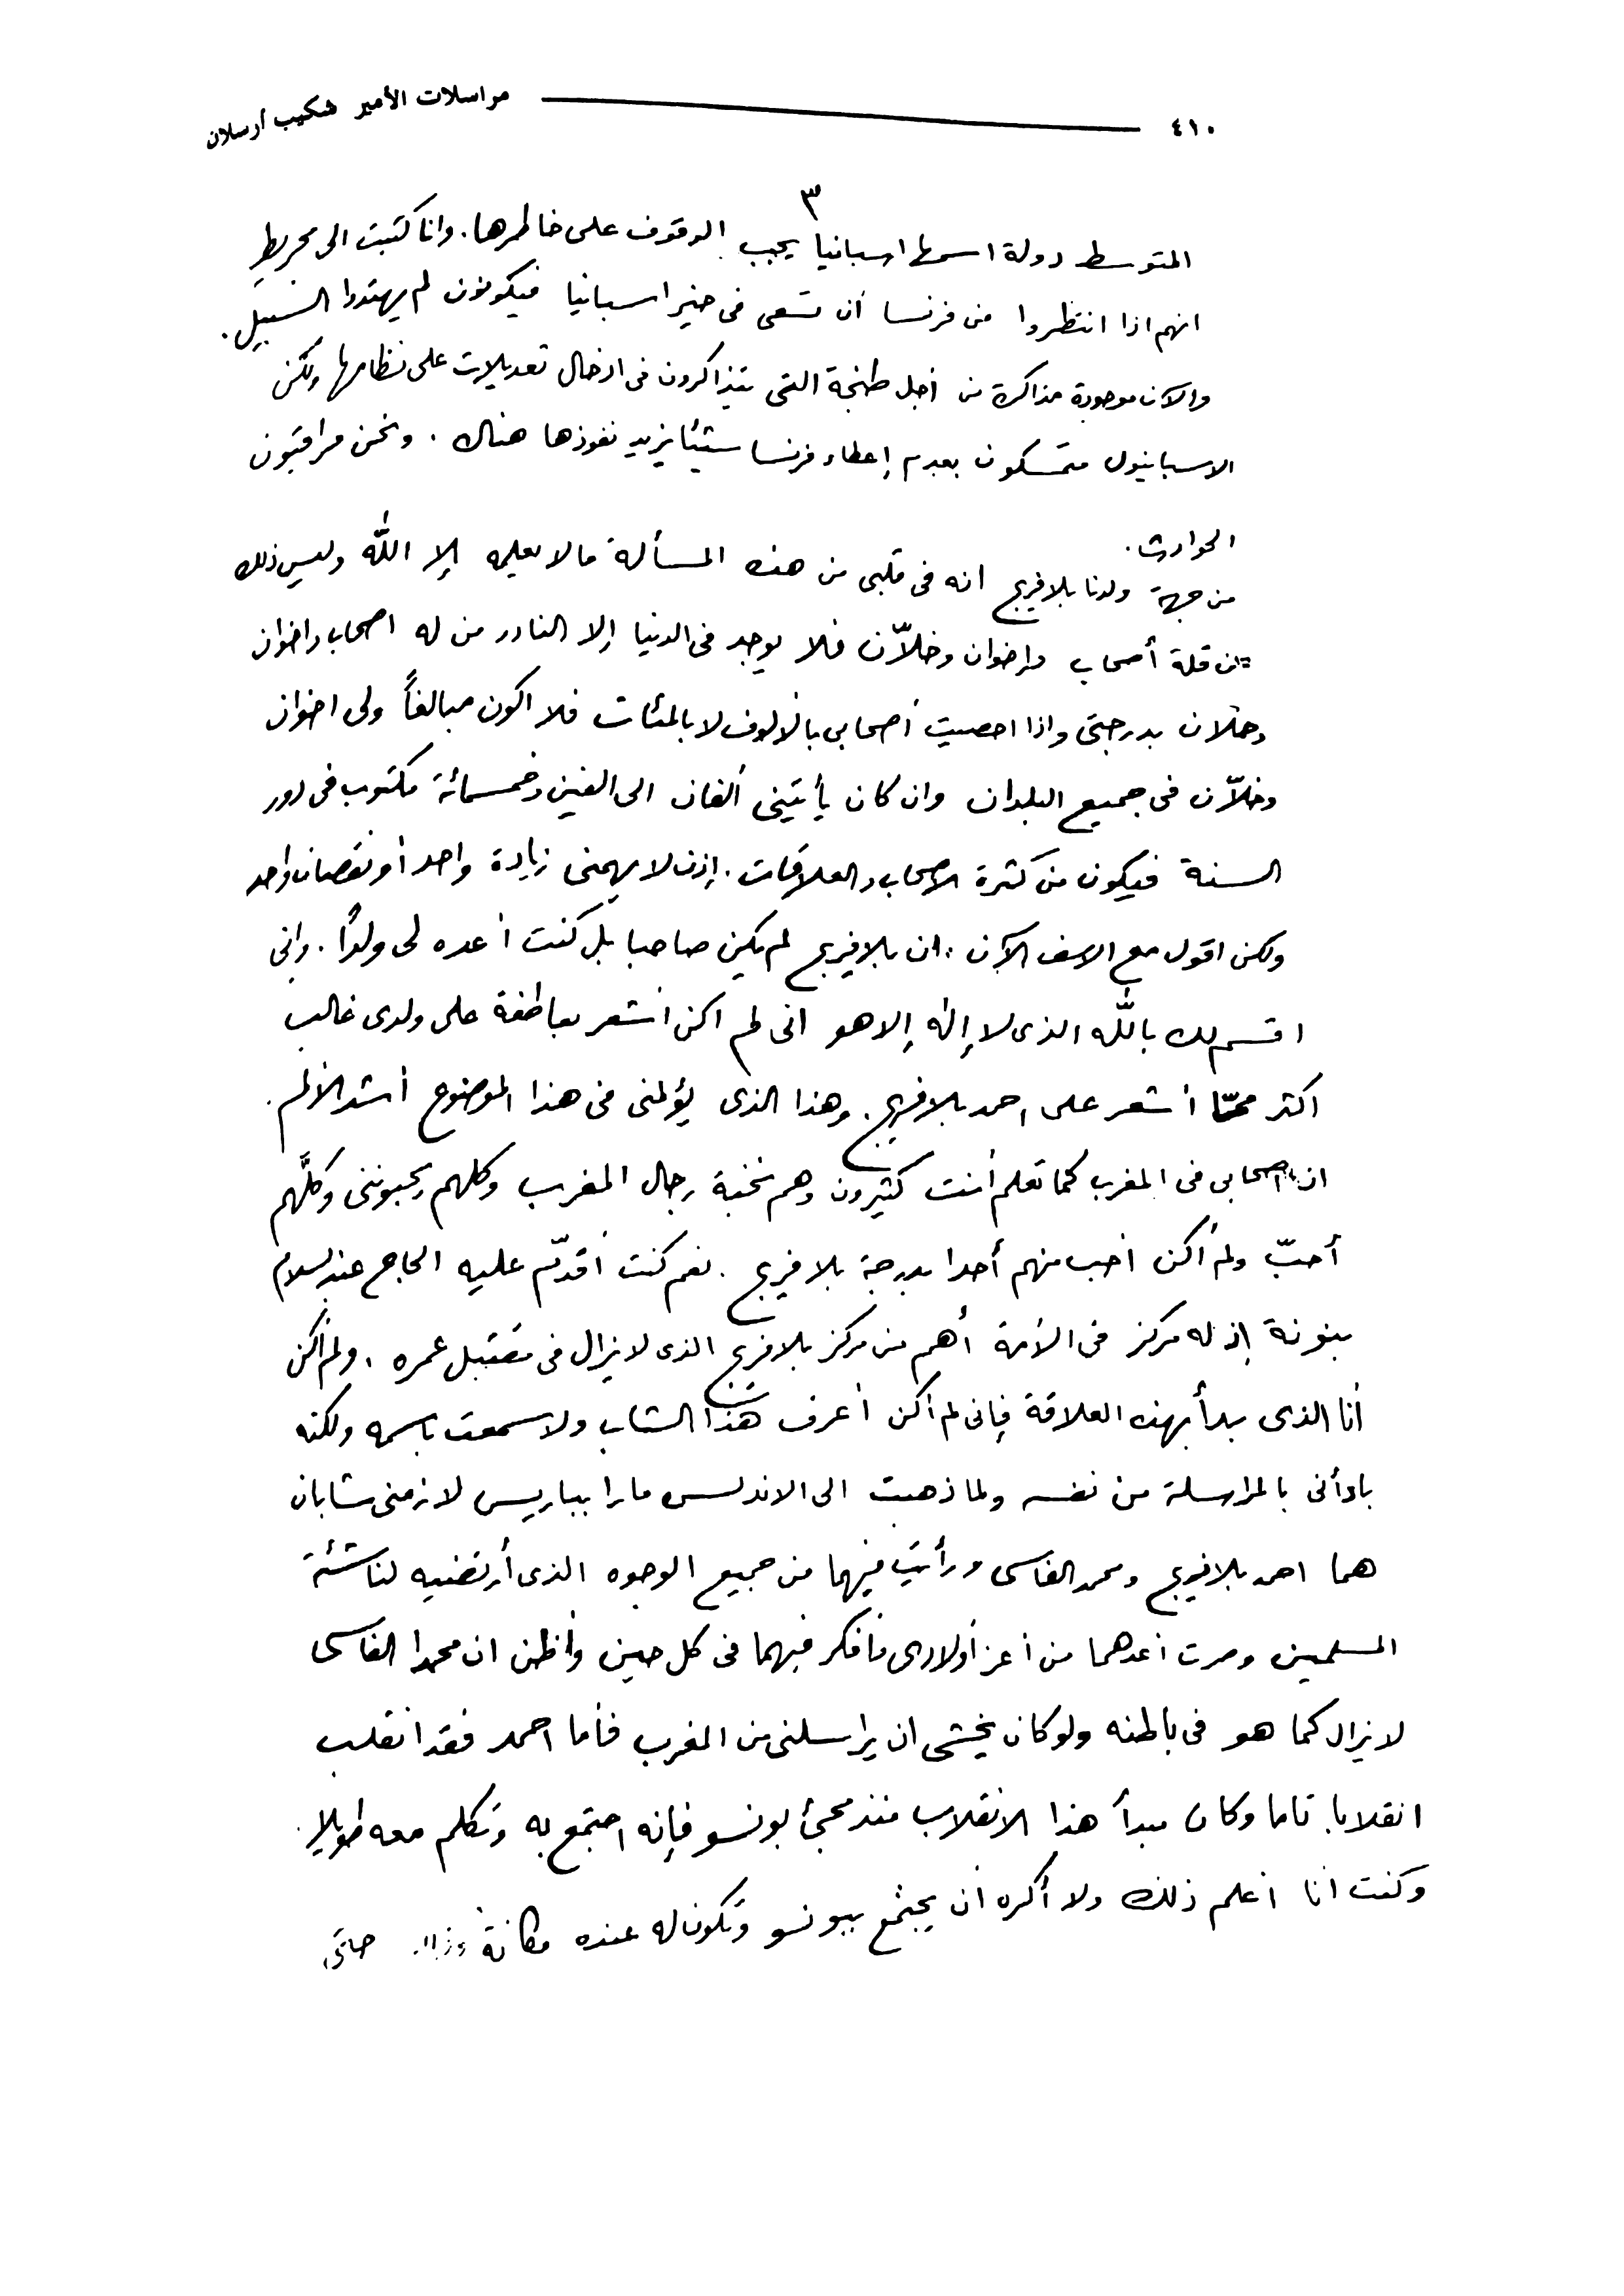 ٤١٠ مراسلات الأمير شكيب أرسلان
٣
المتوسط دولة اسمها اسبانيا يجب الوقوف على خاطرها. وانا كتبت الى مجريط
انهم اذا انتظروا من فرنسا أن تسعى فى خير اسبانيا فيكونون لم يهتدوا السبيل.
والآن موجودة مذاكرة من أجل طنجة التى يتذاكرون فى ادخال تعديلات على نظامها ولكن
الاسبانيول متمسكون بعدم إعطاء فرنسا شيئا يزيد نفوذها هناك. ونحن مراقبون
الحوادث.
من جهة ولدنا بلافريج انه فى قلبى من هذه المسألة ما لا يعلمه إلا الله وليس ذلك
من قلة أصحاب وإخوان وخلاّن فلا يوجد فى الدنيا إلا النادر من له اصحاب واخوان
وخلان بدرجتى واذا احصيت أصحابى بالألوف لا بالمئات فلا اكون مبالغاً ولى اخوان
وخلاّن فى جميع البلدان وان كان يأتينى ألفان الى الفين وخمسمائة مكتوب فى دور
السنة فيكون من كثرة الاصحاب والعلاقات. إذن لا يهمنى زيادة واحد أو نقصان واحد
ولكن اقول مع الاسف الآن ان بلافريج لم يكن صاحبا بل كنت أعده لى ولدًا. وانى
اقسم لك بالله الذى لا إله إلا هو انى لم اكن أشعر بعاطفة على ولدى غالب
اكثر ممّا أشعر على احمد بلافريج. وهذا الذى يؤلمنى فى هذا الموضوع أشد الألم.
ان اصحابى فى المغرب كما تعلم أنت كثيرون وهم نخبة رجال المغرب وكلهم يحبوننى وكلّهم
أحبّ ولم أكن أحب منهم أحدا بدرجة بلافريج. نعم كنت أقدّم عليه الحاج عبد السلام
بنونة إذ له مركز فى الأمة أهم من مركز بلافريج الذى لا يزال فى مقتبل عمره. ولم أكن
أنا الذى بدأ بهذه العلاقة فإنى لم أكن أعرف هذا الشاب ولا سمعت باسمه ولكنه
بادأنى بالمراسلة من نفسه ولما ذهبت الى الاندلس مارا بباريس لازمنى شابان
هما احمد بلافريج ومحمد الفاسى ورأيت فيهما من جميع الوجوه الذى أرتضيه لناشئة
المسلمين وصرت أعدهما من أعز أولادى فأفكر فيهما فى كل حين وأظن ان محمدا الفاسى
لا يزال كما هو فى باطنه ولو كان يخشى ان يراسلنى من المغرب فأما احمد فقد انقلب
انقلابا تاما وكان مبدأ هذا الانقلاب منذ مجئ بونسو فإنه اجتمع به وتكلم معه طويلا.
وكنت انا أعلم ذلك ولا أكره أن يجتمع ببونسو وتكون له عنده مكانة حتى